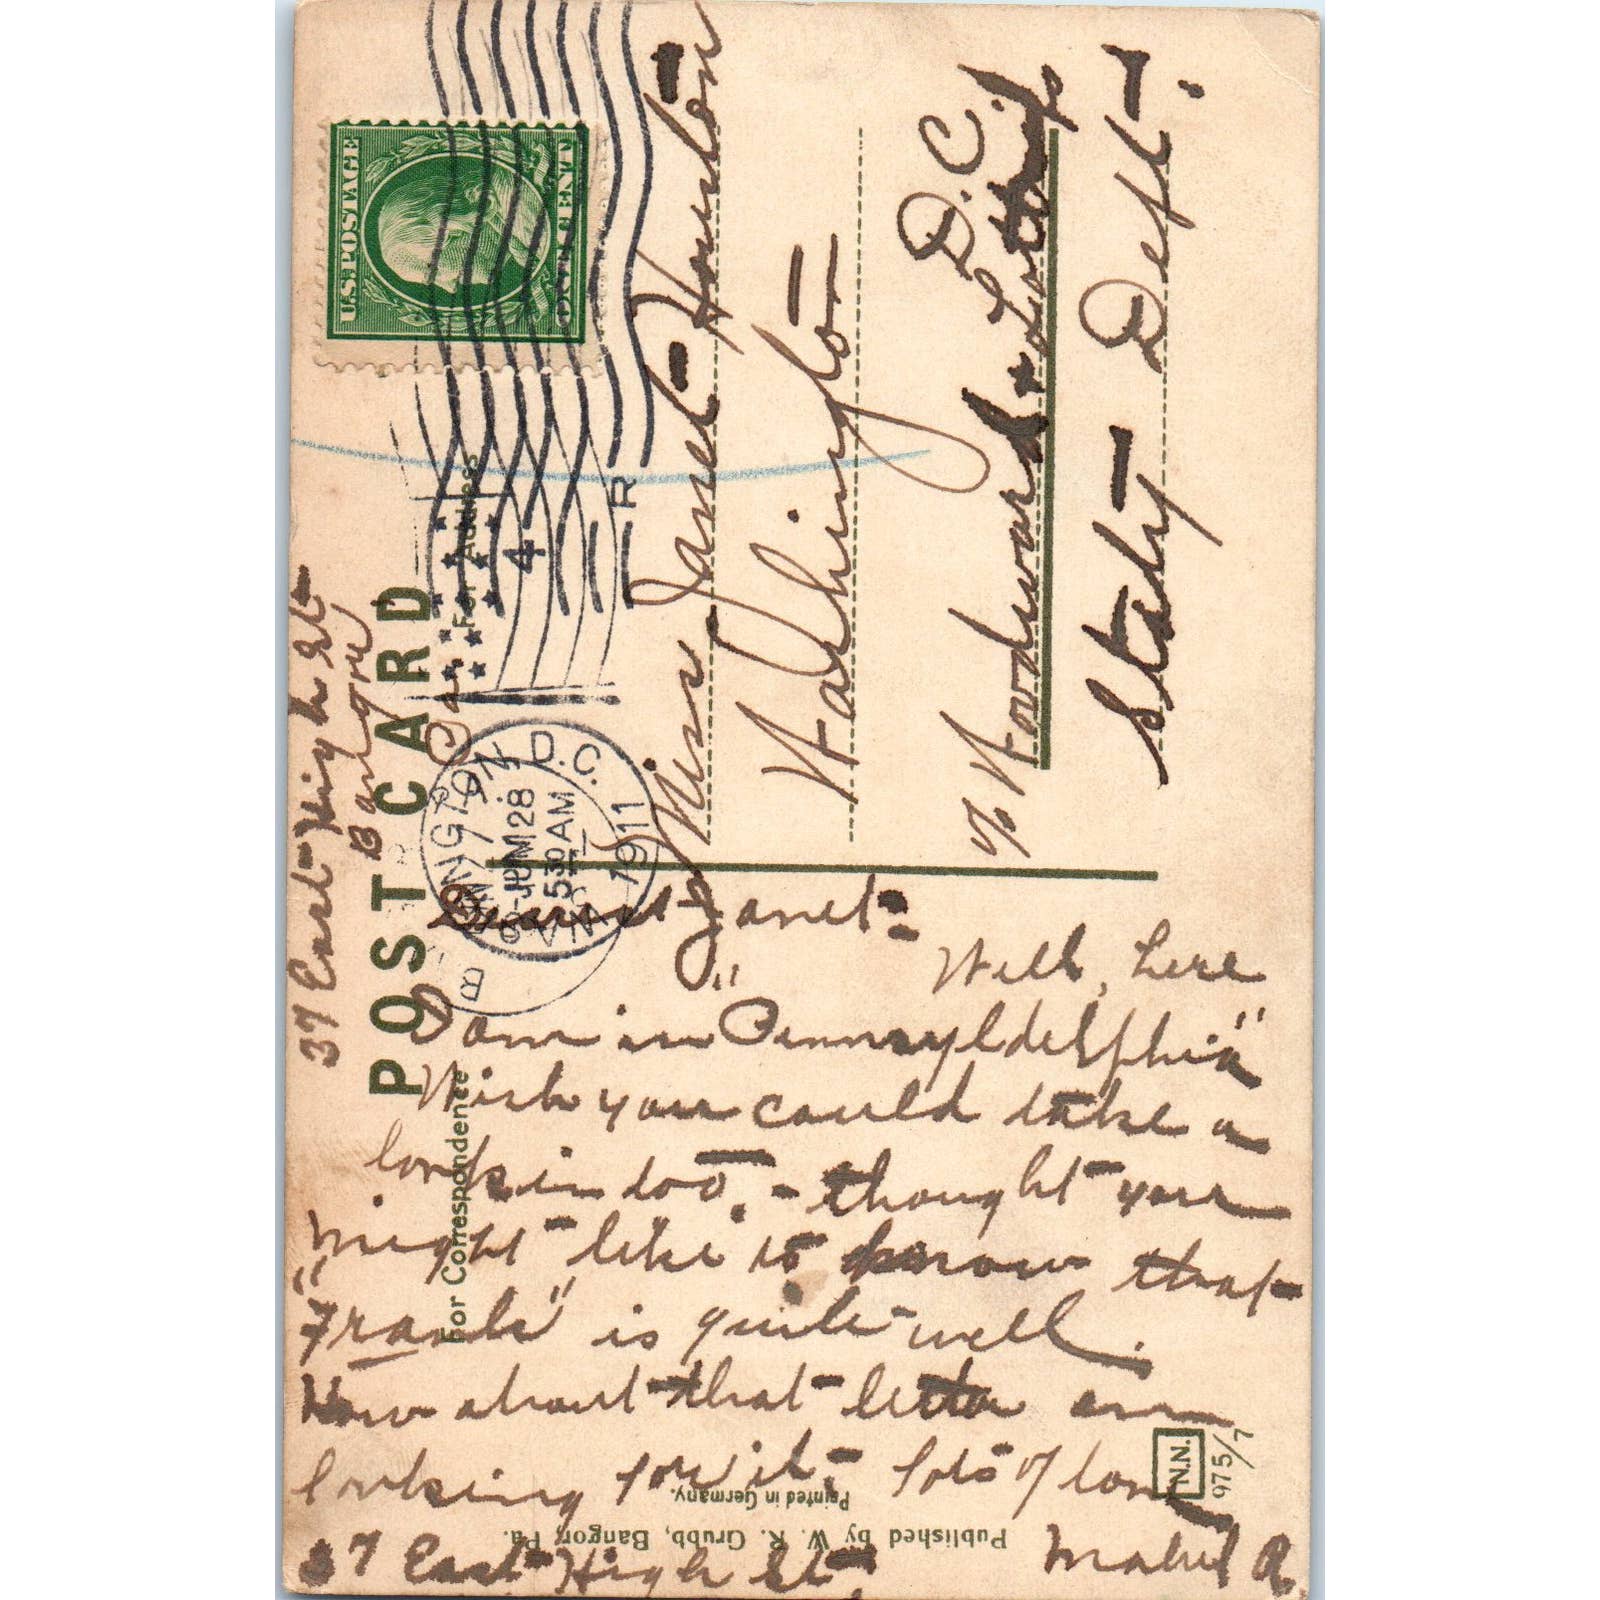 37 East High St
Bangor
Pa
POST CARD
For Correspondence
For Address
U.S. POSTAGE
ONE CENT
WASHINGTON D.C.
JUN 28
5 30 AM
1911
4
R
Dearest Janet -
Well, here
I am in "Pennsyldelphia"
Wish you could take a
look in too. - thought you
might like to know that
"Frank" is quite well.
How about that letter am
looking for it, - lots of love
Mabel R.
37 East High St.
Miss Janet Houston
Washington
D.C.
c/o Woodward & Lothrop
Staty Dept.
Published by W. R. Grubb, Bangor, Pa.
Printed in Germany.
N.N.
975/7